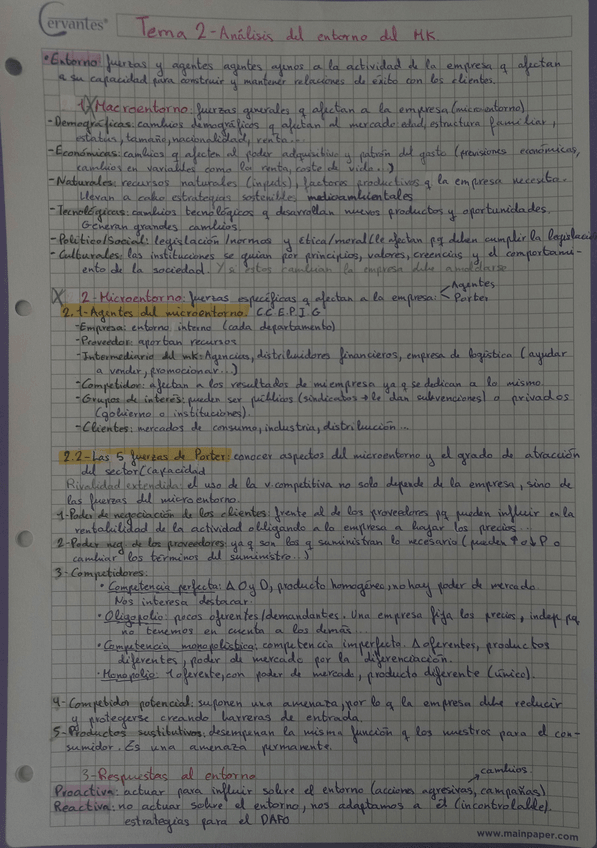 Cervantes®
Tema 2-Análisis del entorno del MK
•Entorno fuerzas y agentes agentes ajenos a la actividad de la empresa q afectan
a su capacidad para construir y mantener relaciones de éxito con los clientes.
1. Macroentorno: fuerzas generales q afectan a la empresa (microentorno)
-Demográficas: cambios demográficos q afectan al mercado edad, estructura familiar,
estatus, tamaño, nacionalidad, renta...
-Económicas: cambios q afecten al poder adquisitivo y patrón del gasto (previsiones económicas,
cambios en variables como la renta, coste de vida...)
-Naturales: recursos naturales (inputs), factores productivos q la empresa necesita.
Llevan a cabo estrategias sostenibles medioambientales
-Tecnológicas: cambios tecnológicos q desarrollan nuevos productos y oportunidades.
Generan grandes cambios
-Político/Social: legislación/normas y ética/moral (le afectan pq deben cumplir la legislación
-Culturales: las instituciones se guían por principios, valores, creencias y el comportami-
ento de la sociedad. Y si estos cambian la empresa debe amoldarse
2-Microentorno: fuerzas específicas q afectan a la empresa: Agentes
Porter
2.1-Agentes del microentorno. CCEPIG
-Empresa: entorno interno (cada departamento)
-Proveedor: aportan recursos
-Intermediario del mk: Agencias, distribuidores financieros, empresa de logística (ayudar
a vender, promocionar...)
-Competidor: afectan a los resultados de mi empresa ya q se dedican a lo mismo.
-Grupos de interés: pueden ser públicos (sindicatos → le dan subvenciones) o privados
(gobierno o instituciones).
-Clientes: mercados de consumo, industria, distribución...
2.2-Las 5 fuerzas de Porter: conocer aspectos del microentorno y el grado de atracción
del sector (capacidad
Rivalidad extendida: el uso de la v. competitiva no solo depende de la empresa, sino de
las fuerzas del microentorno.
1-Poder de negociación de los clientes: frente al de los proveedores pq pueden influir en la
rentabilidad de la actividad obligando a la empresa a bajar los precios...
2-Poder neg. de los proveedores: ya q son los q suministran lo necesario (pueden ↑ o ↓ P o
cambiar los términos del suministro...)
3-Competidores:
• Competencia perfecta: Δ O y D, producto homogéneo, no hay poder de mercado
Nos interesa destacar
• Oligopolio: pocos oferentes/demandantes. Una empresa fija los precios, indep pq
no tenemos en cuenta a los demás
• Competencia monopolística: competencia imperfecta. Δ oferentes, productos
diferentes, poder de mercado por la diferenciación.
• Monopolio: 1 oferente, con poder de mercado, producto diferente (único).
4-Competidor potencial: suponen una amenaza, por lo q la empresa debe reducir
y protegerse creando barreras de entrada.
5-Productos sustitutivos: desempeñan la misma función q los nuestros para el con-
sumidor. Es una amenaza permanente.
3-Respuestas al entorno
cambios
Proactiva: actuar para influir sobre el entorno (acciones agresivas, campañas)
Reactiva: no actuar sobre el entorno, nos adaptamos a él (incontrolable).
estrategias para el DAFO
www.mainpaper.com